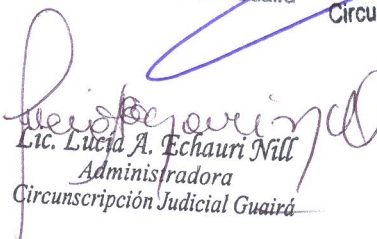 Guairá
Circu
Lic. Lucia A. Echauri Nill
Administradora
Circunscripción Judicial Guairá